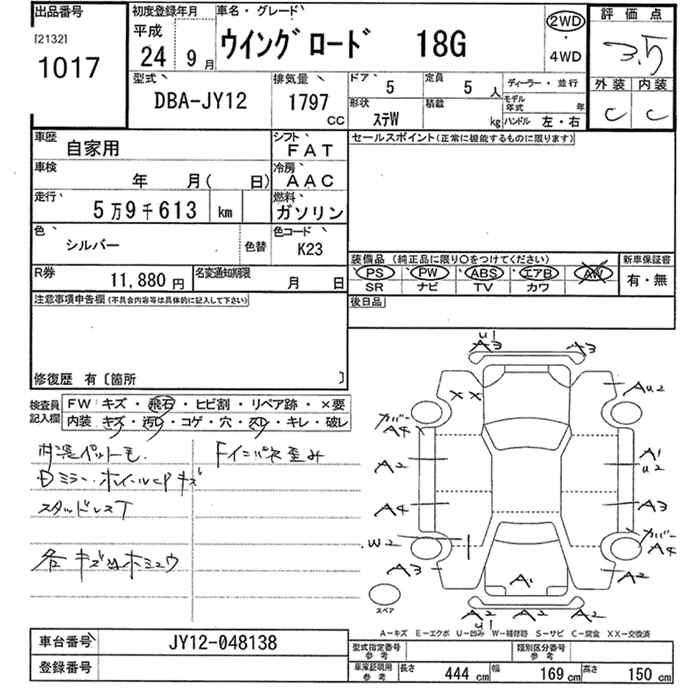 出品番号
[2132]
1017
初度登録年月
平成
24 9月
車名・グレード
ウイングロード 18G
2WD
・
4WD
評価点
3.5
外装 内装
C C
型式
DBA-JY12
排気量
1797
CC
ドア 5
形状 ステW
定員 5人
積載 kg
ディーラー・並行
モデル年式 年
ハンドル 左・右
車歴
自家用
シフト
FAT
車検
年 月( 日)
冷房
AAC
走行
5万9千613 km
燃料
ガソリン
色
シルバー
色替
色コード
K23
R券
11,880円
名変通知期限
月 日
セールスポイント(正常に機能するものに限ります)
装備品 (純正品に限り○をつけてください)
PS PW ABS エアB AW
SR ナビ TV カワ
新車保証書
有・無
後日品
注意事項申告欄(不具合内容等は具体的に記入して下さい)
修復歴 有〔箇所 〕
検査員記入欄
FW キズ・飛石・ヒビ割・リペア跡・×要
内装 キズ・汚レ・コゲ・穴・スレ・キレ・破レ
Dミラー・ホイールCPキズ
スタッドレスT
各キズ凹ホミュウ
Fインパネ歪み
U1
A3 A3
XX
AU2
カバー
A4
A1
U2
A2
A4 A3
W2
カバー
A4
A3 A2
A1
A2 A2 A2
U1
スペア
A-キズ E-エクボ U-凹み W-補修跡 S-サビ C-腐食 XX-交換済
車台番号
JY12-048138
登録番号
型式指定番号
参考
類別区分番号
参考
車庫証明用
参考
長さ 444 cm 幅 169 cm 高さ 150 cm